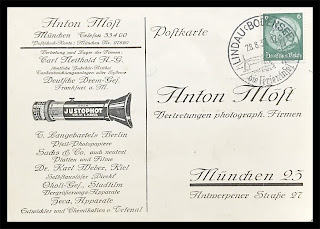 Anton Möst
München Telefon 33400
Postscheck-Konto: München Nr.
Vertretung und Lager der Firmen:
Carl Neithold A.-G.
Deutsche Dreni-Ges.
Frankfurt a. M.
JUSTOPHOT
C. Langebartels Berlin
Pfeil-Photopapiere
Sachs & Co. auch neutral
Platten und Filme
Dr. Karl Weber, Kiel
Selbstauslöser Direkt
Okoli-Ges., Stadtilm
Vergrößerungs-Apparate
Zeca, Apparate
Entwickler und Chemikalien v. Tetenal
Postkarte
LINDAU-BODENSEE
28.8.
6
Deutsches Reich
Anton Möst
Vertretungen photograph. Firmen
München 25
Antwerpener Straße 27